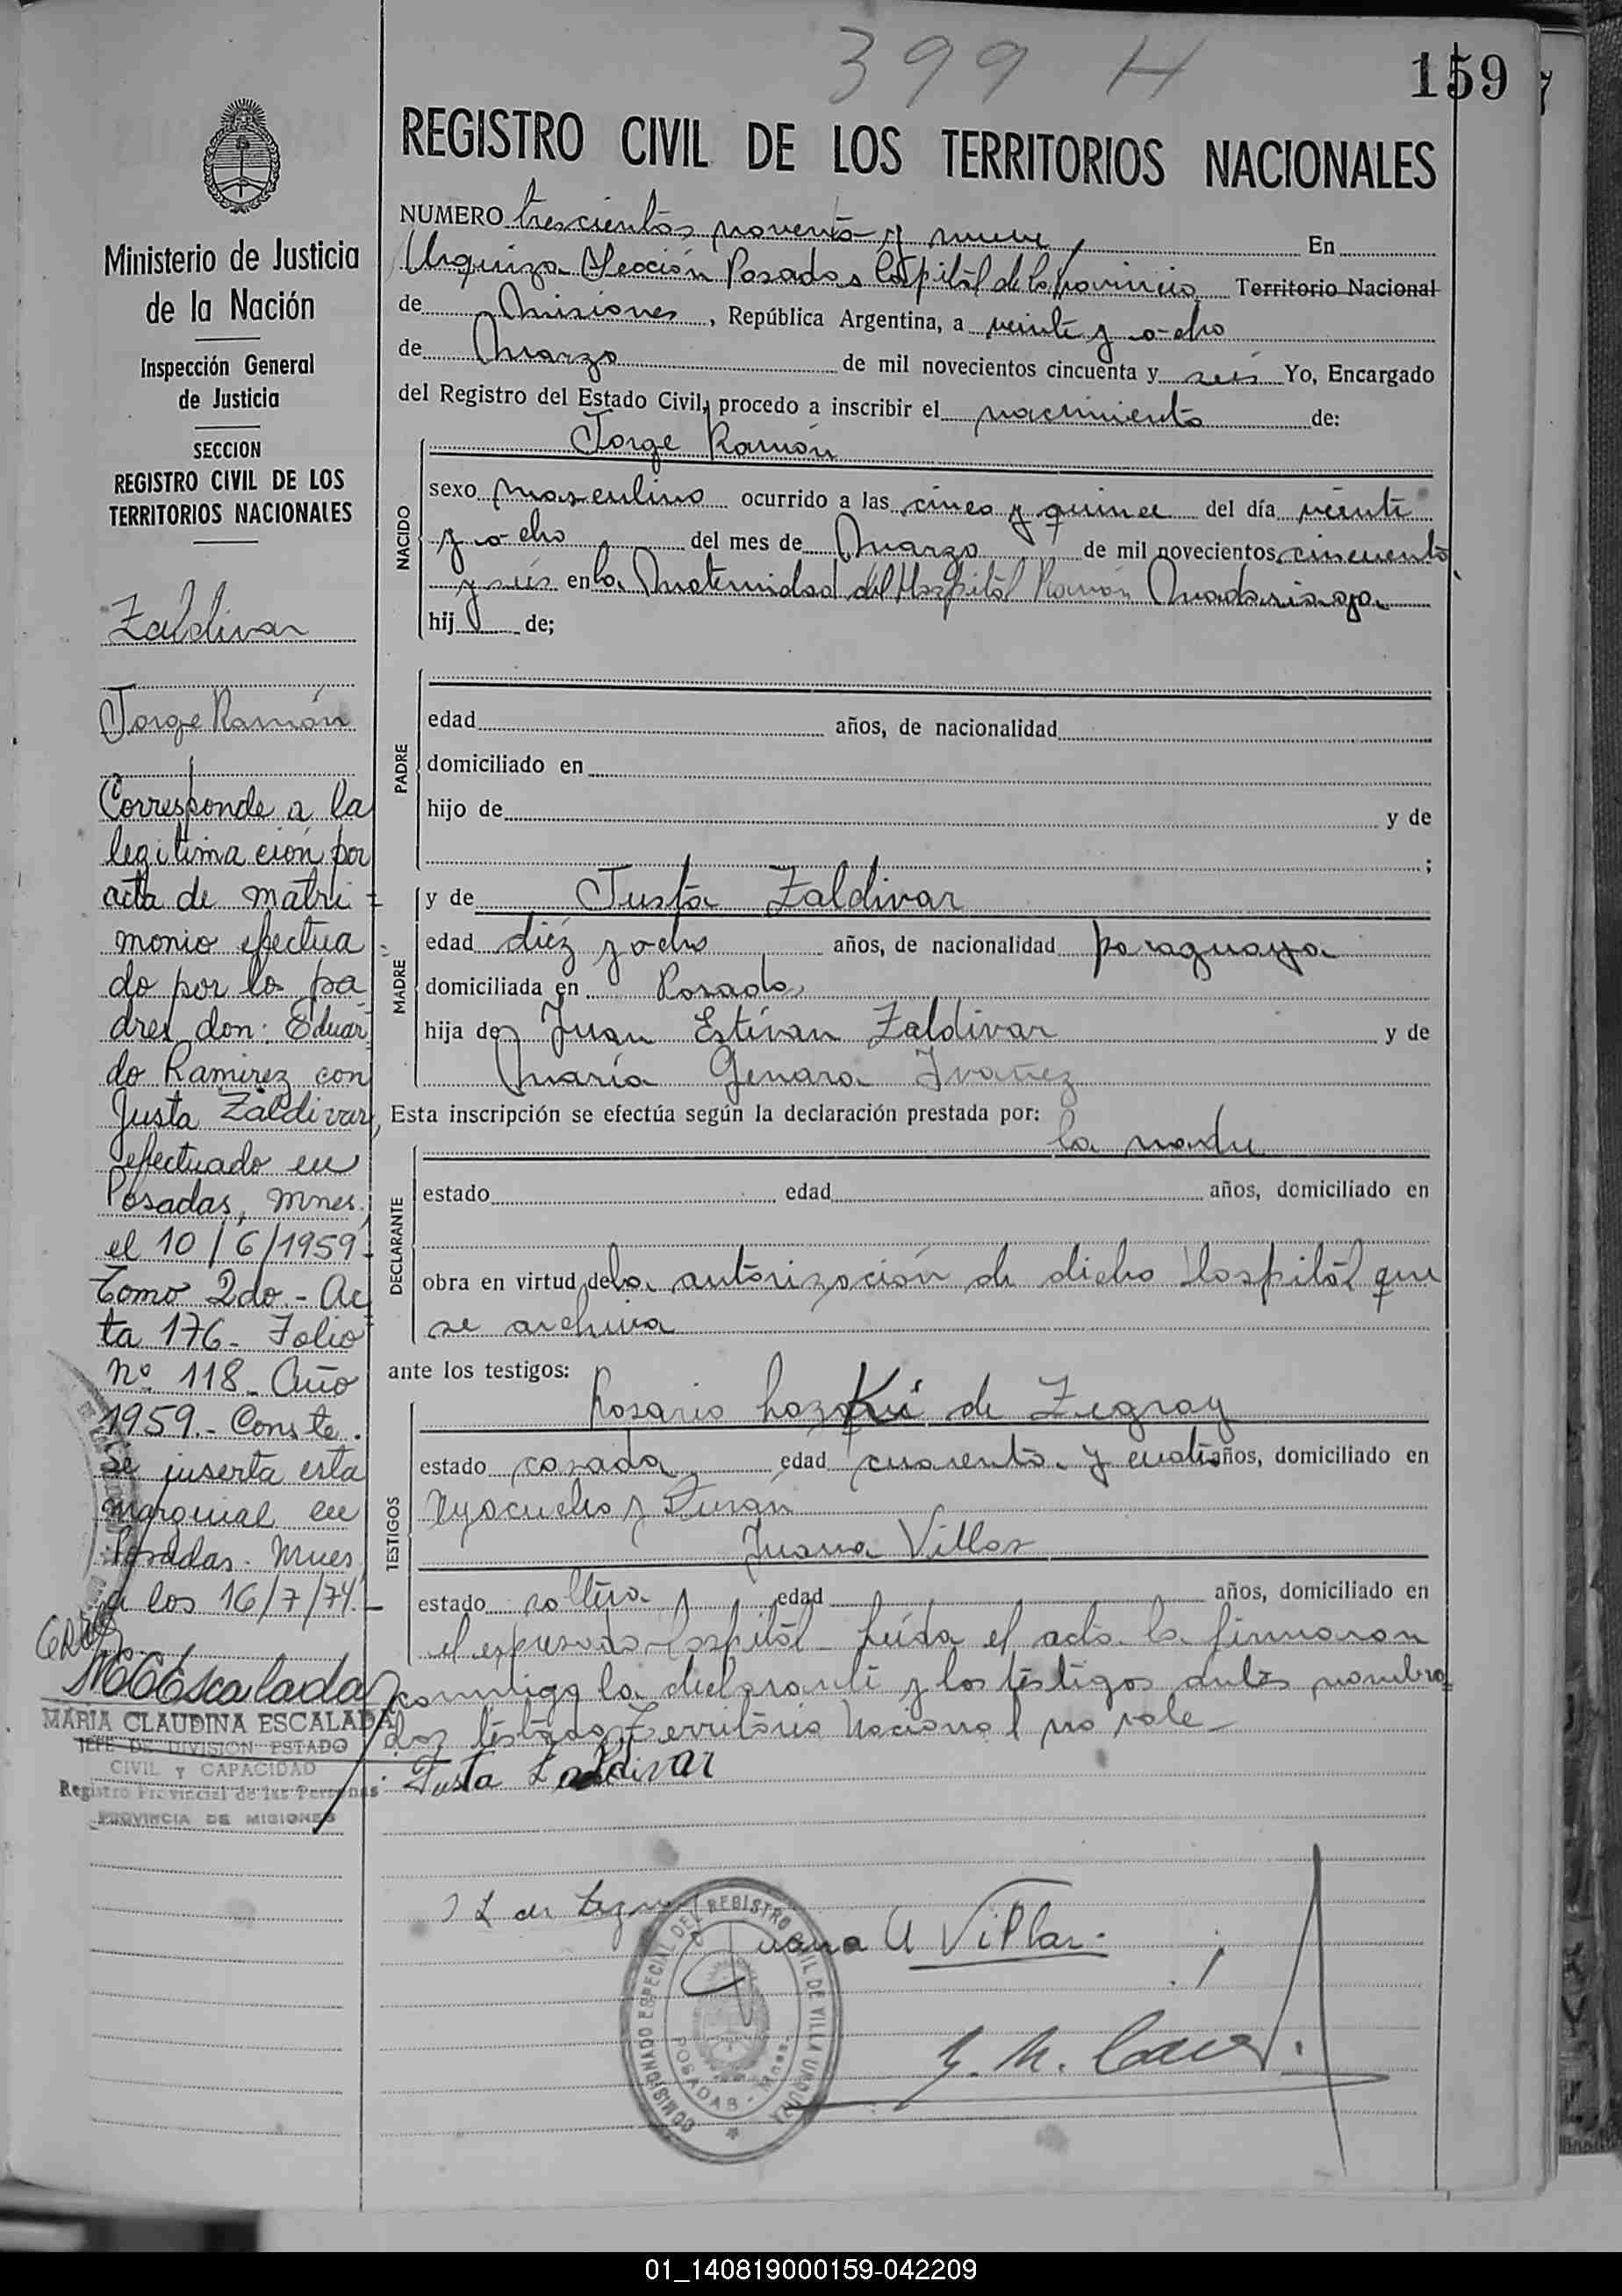 399 H
159
REGISTRO CIVIL DE LOS TERRITORIOS NACIONALES
NUMERO trescientos noventa y nueve En
Urquiza Sección Posadas Capital de la Provincia Territorio Nacional
de Misiones, República Argentina, a veinte y ocho
de Marzo de mil novecientos cincuenta y seis Yo, Encargado
del Registro del Estado Civil, procedo a inscribir el nacimiento de:
Jorge Ramón
NACIDO
sexo masculino ocurrido a las cinco y quince del día veinte
y ocho del mes de Marzo de mil novecientos cincuenta
y seis en la Maternidad del Hospital Ramón Madariaga
hij de;
PADRE
edad años, de nacionalidad
domiciliado en
hijo de y de
;
MADRE
y de Justa Zaldivar
edad diéz y ocho años, de nacionalidad paraguaya
domiciliada en Posadas
hija de Juan Estivan Zaldivar y de
María Genara Ivañez
Esta inscripción se efectúa según la declaración prestada por:
la madre
DECLARANTE
estado edad años, domiciliado en
obra en virtud de la autorización de dicho Hospital que
se archiva
ante los testigos:
TESTIGOS
Rosario de Zegray
estado casada edad cuarenta y cuatro años, domiciliado en
Ayacucho y Durán
Juana Villar
estado soltera edad años, domiciliado en
el expresado Hospital - Leída el acta la firmaron
conmigo la declarante y los testigos antes nombra
dos testado Territorio Nacional no vale -
Justa Zaldivar
Juana U Villar.
COMISIONADO ESPECIAL DEL REGISTRO CIVIL DE VILLA URQUIZA
POSADAS - Mnes.
Ministerio de Justicia
de la Nación
Inspección General
de Justicia
SECCION
REGISTRO CIVIL DE LOS
TERRITORIOS NACIONALES
Zaldivar
Jorge Ramón
Corresponde a la
legitimación por
acta de matri=
monio efectua
do por los pa
dres don: Eduar
do Ramirez con
Justa Zaldivar,
efectuado en
Posadas, Mnes.
el 10/6/1959-
Tomo 2do.- Ac
ta 176- Folio
Nº 118- Año
1959.- Conste.
Se inserta esta
marguial en
Posadas. Mnes
a los 16/7/74.-
MCEscalada
MARIA CLAUDINA ESCALADA
JEFE DE DIVISION ESTADO
CIVIL Y CAPACIDAD
Registro Provincial de las Personas
PROVINCIA DE MISIONES
01_140819000159-042209